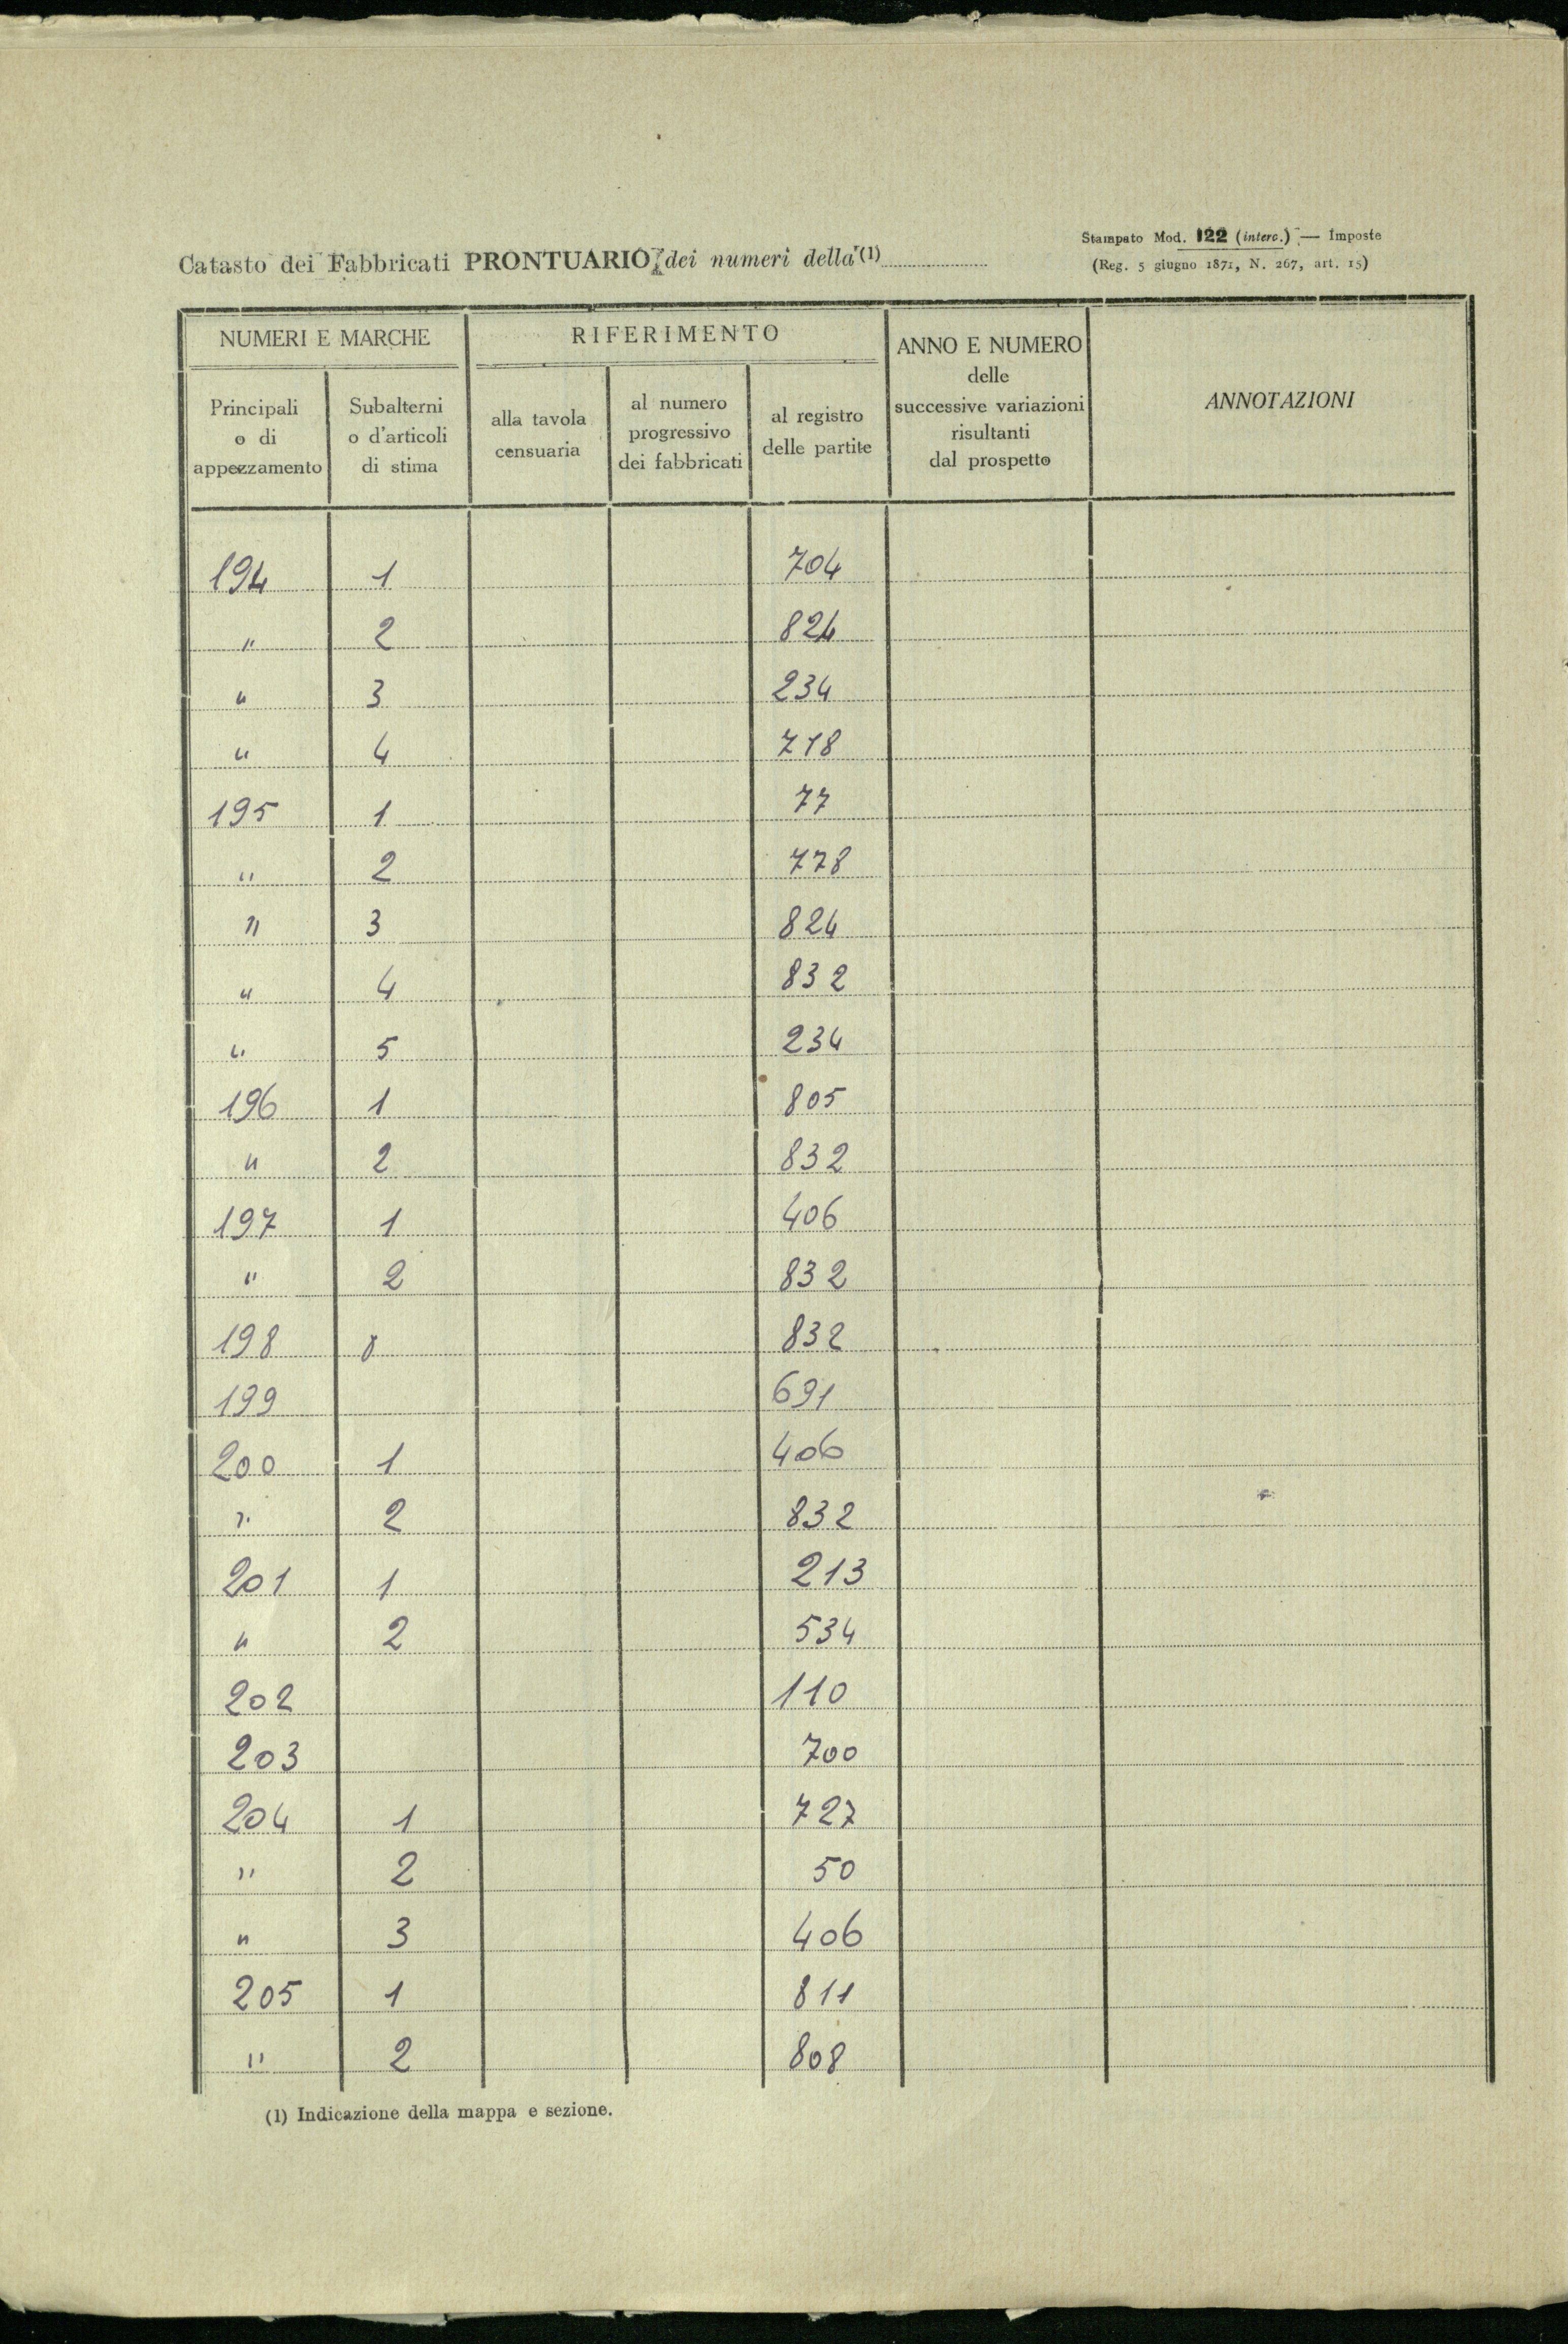 Catasto dei Fabbricati PRONTUARIO dei numeri della (1)
Stampato Mod. 122 (interc.) — Imposte
(Reg. 5 giugno 1871, N. 267, art. 15)
NUMERI E MARCHE
RIFERIMENTO
ANNO E NUMERO
delle
successive variazioni
risultanti
dal prospetto
ANNOTAZIONI
Principali
o di
appezzamento
Subalterni
o d'articoli
di stima
alla tavola
censuaria
al numero
progressivo
dei fabbricati
al registro
delle partite
194 1 704
" 2 824
" 3 234
" 4 718
195 1 77
" 2 778
" 3 824
" 4 832
" 5 234
196 1 805
" 2 832
197 1 406
" 2 832
198 832
199 691
200 1 406
" 2 832
201 1 213
" 2 534
202 110
203 700
204 1 727
" 2 50
" 3 406
205 1 811
" 2 808
(1) Indicazione della mappa e sezione.